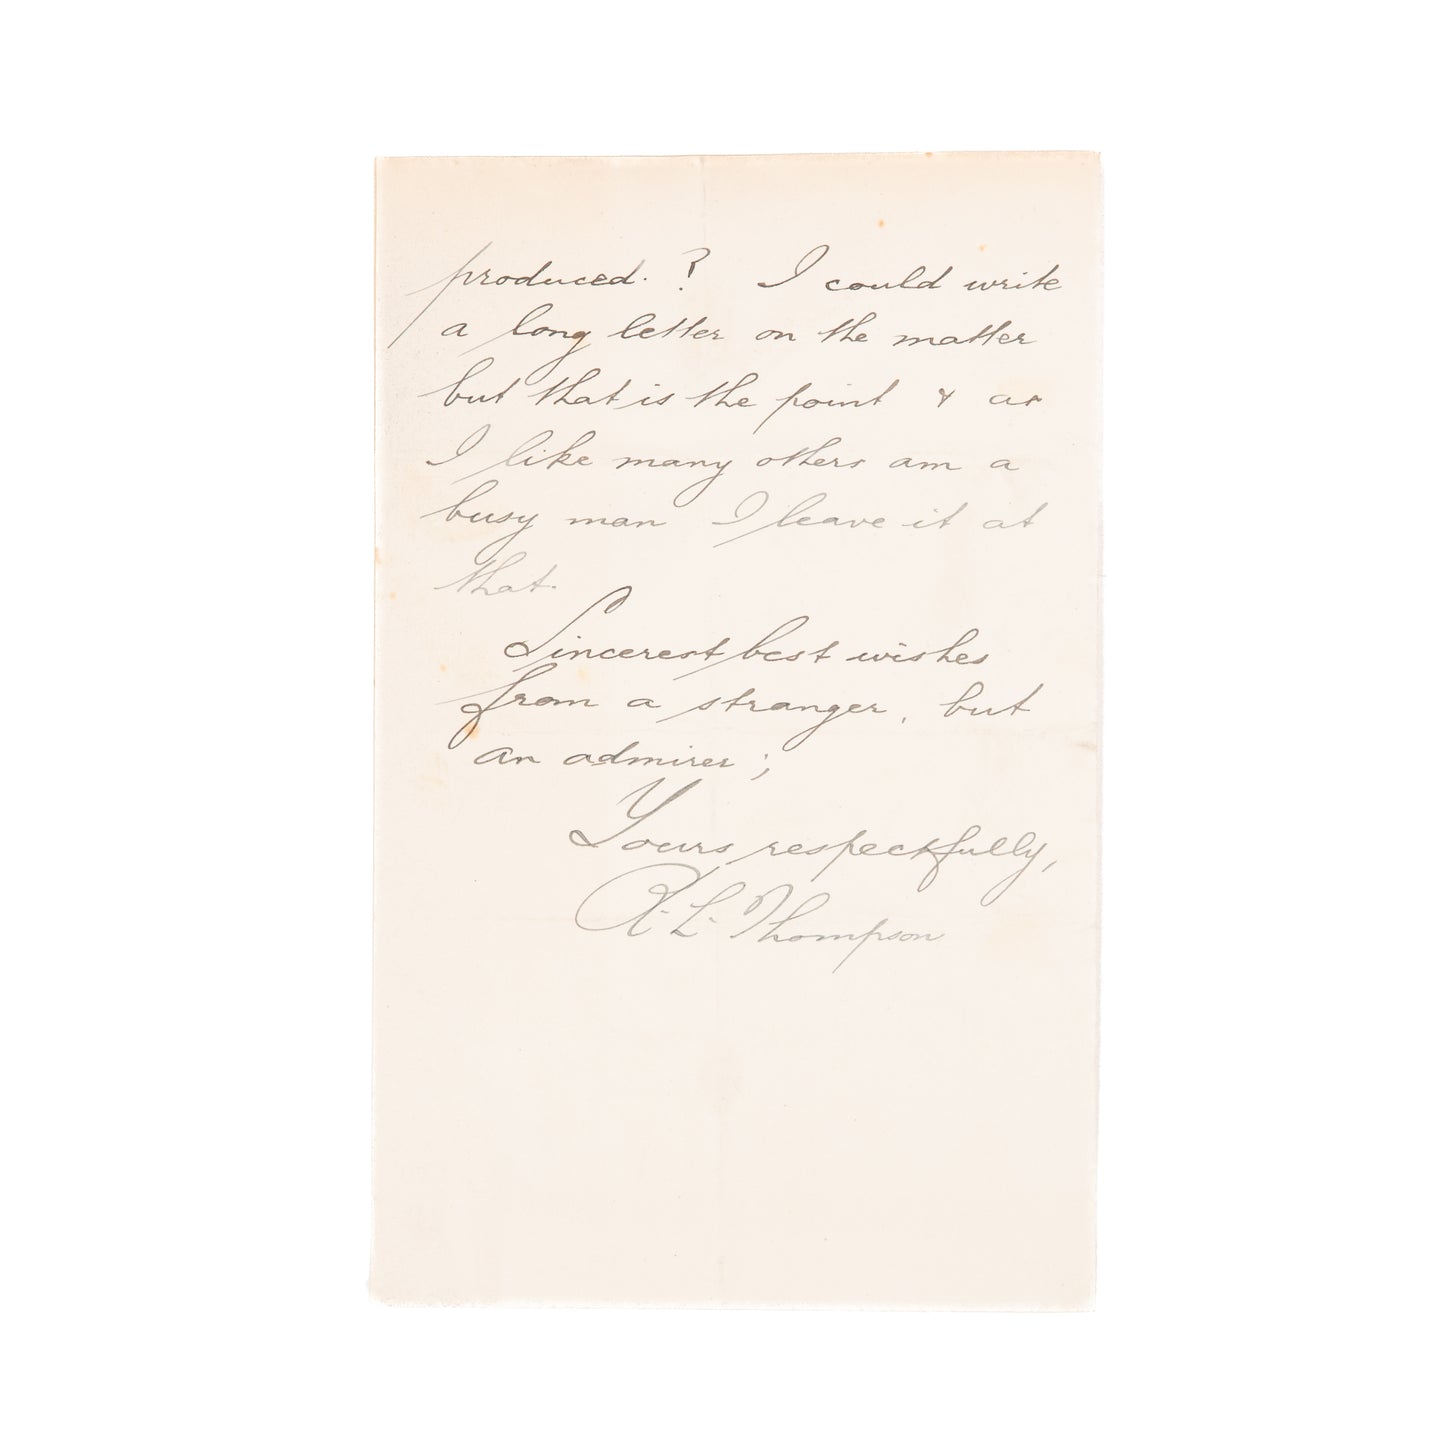 produced. ? I could write
a long letter on the matter
but that is the point & as
I like many others am a
busy man I leave it at
that.
Sincerest best wishes
from a stranger, but
an admirer;
Yours respectfully,
R. L. Thompson